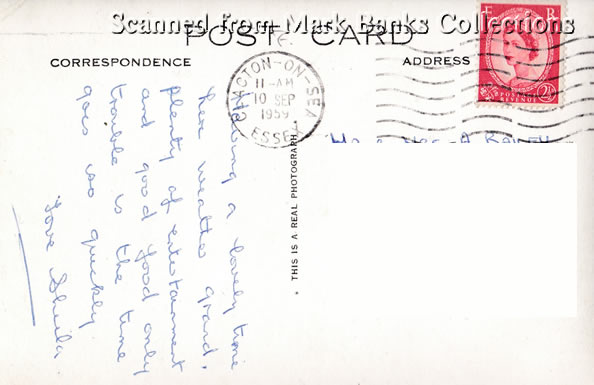 Scanned from Mark Banks Collections
POST CARD
CORRESPONDENCE
ADDRESS
CLACTON-ON-SEA
11-AM
10 SEP
1959
ESSEX
E R
POSTAGE
REVENUE
2½
Having a lovely time
here weather grand,
plenty of entertainment
and good food only
trouble is the time
goes so quickly
Love Sheila.
THIS IS A REAL PHOTOGRAPH